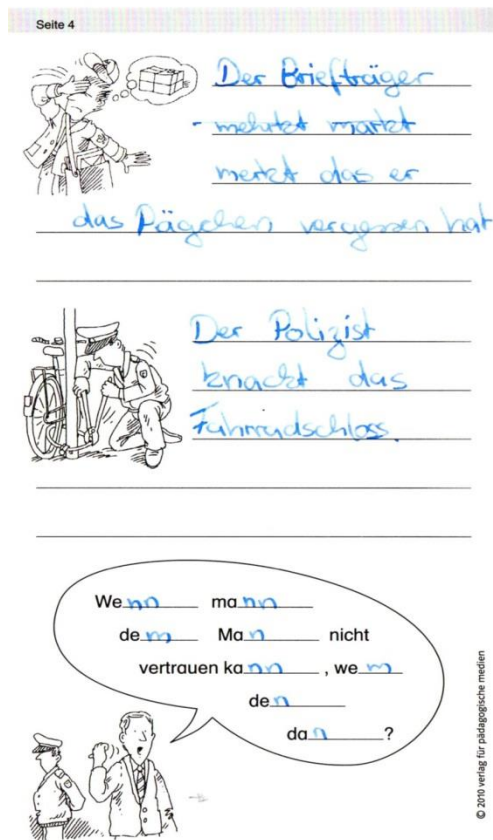 Seite 4
Der Briefträger
- mehrkt markt
merkt das er
das Pägchen vergessen hat
Der Polizist
knackt das
Fahrradschloss.
Wenn mann
dem Man nicht
vertrauen kann, wem
den
dan?
© 2010 verlag für pädagogische medien